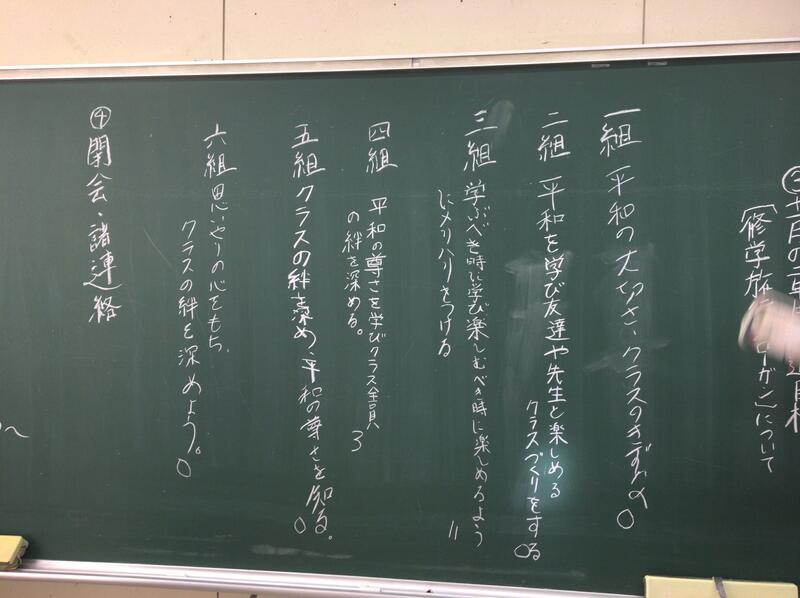 ③十一月の
「修学旅行スローガン」について
一組 平和の大切さ、クラスのきずな
0
二組 平和を学び友達や先生と楽しめる
クラスづくりをする
0
三組 学ぶべき時に学び楽しむべき時に楽しめるよう
にメリハリをつける
11
四組 平和の尊さを学びクラス全員
の絆を深める。
3
五組 クラスの絆深め、平和の尊さを知る。
0
六組 思いやりの心をもち、
クラスの絆を深めよう。
0
④閉会・諸連絡